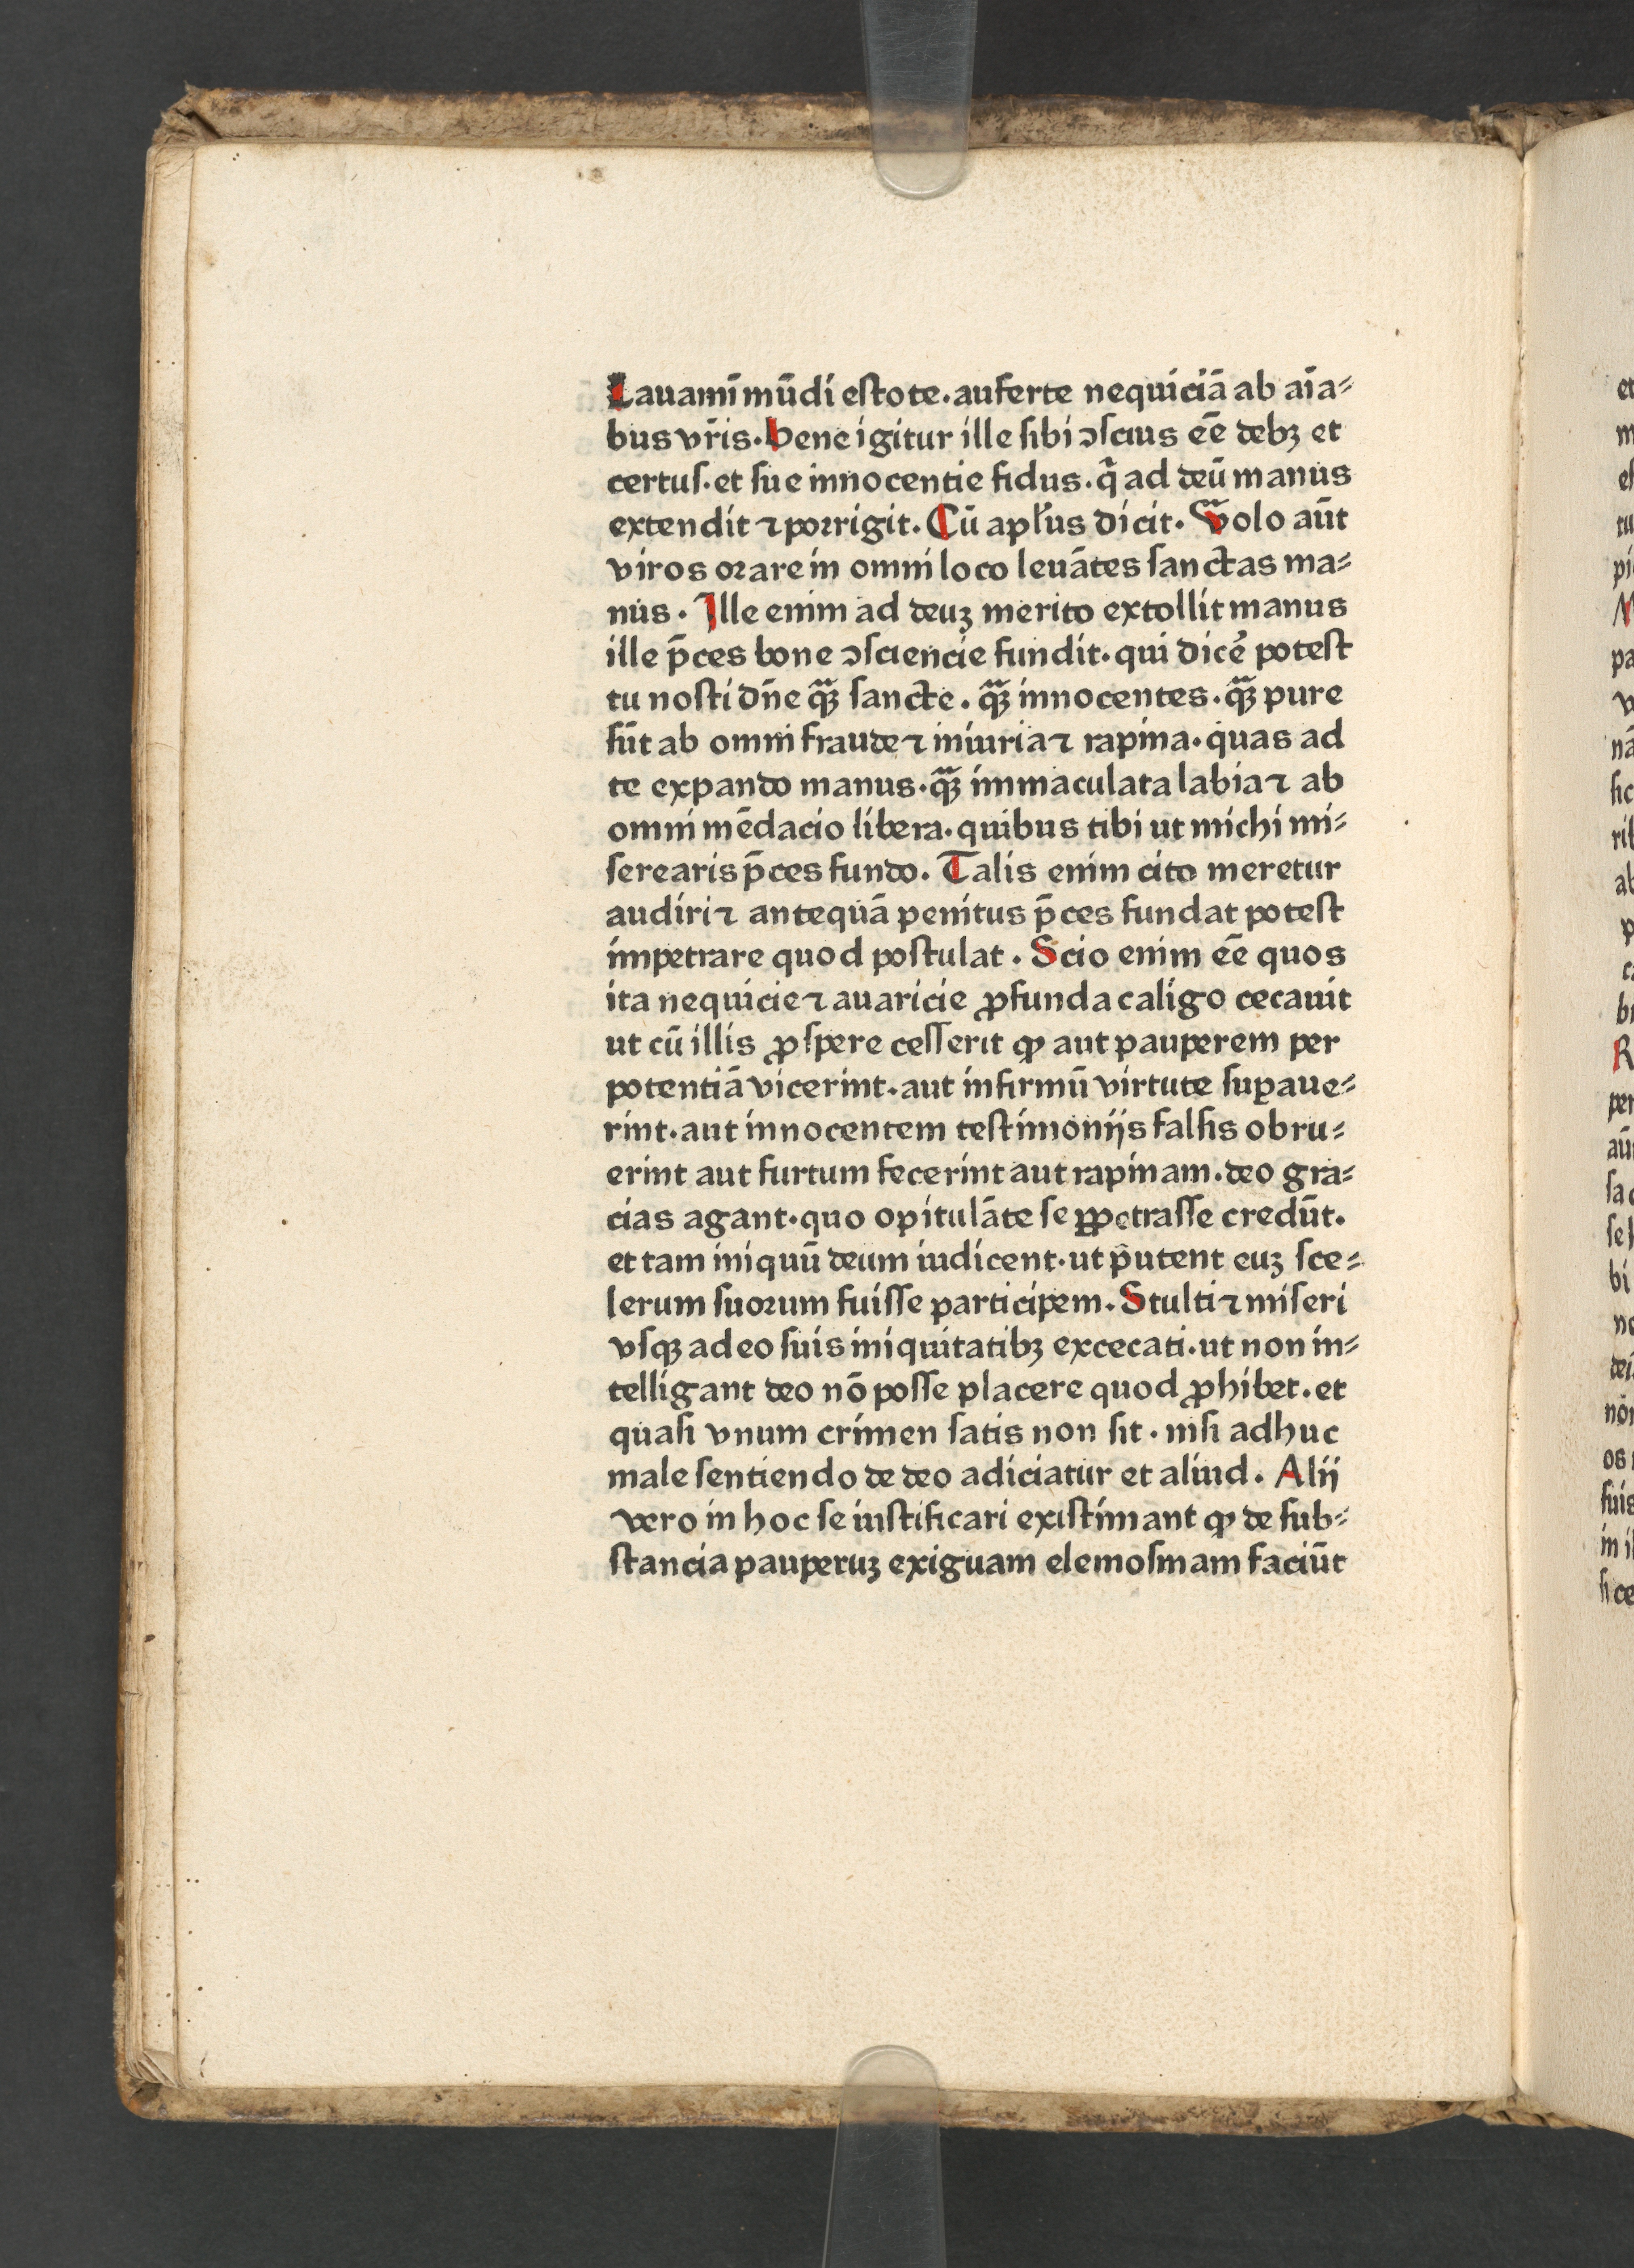 Lauamī mūdi estote. auferte nequiciā ab aīa⸗
bus vr̄is. Bene igitur ille sibi ↄscius eē̄ debꝫ et
certus. et sue innocentie fidus. q̄ ad deū manus
extendit ⁊ porrigit. Cū apl̓us dicit. Volo aūt
viros orare in omni loco leuātes sanctas ma⸗
nus. Ille enim ad deuꝫ merito extollit manus
ille p̄ces bone ↄsciencie fundit. qui dicē potest
tu nosti dn̄e qꝫ̄ sancte. qꝫ̄ innocentes. qꝫ̄ pure
sūt ab omni fraude ⁊ iniuria ⁊ rapina. quas ad
te expando manus. qꝫ̄ immaculata labia ⁊ ab
omni mēdacio libera. quibus tibi ut michi mi⸗
serearis p̄ces fundo. Talis enim cito meretur
audiri ⁊ antequā penitus p̄ces fundat potest
impetrare quod postulat. Scio enim eē quos
ita nequicie ⁊ avaricie ꝓfunda caligo cecauit
ut cū illis ꝓspere cesserit ꝙ aut pauperem per
potentiā vicerint. aut infirmū virtute suꝑaue⸗
rint. aut innocentem testimoniis falsis obru⸗
erint aut furtum fecerint aut rapinam. deo gra⸗
cias agant. quo opitulāte se ꝑpetrasse credūt.
et tam iniquū deum iudicent. ut p̄utent euꝫ sce⸗
lerum suorum fuisse participem. Stulti ⁊ miseri
vsqꝫ adeo suis iniquitatibꝫ excecati. ut non in⸗
telligant deo nō posse placere quod ꝓhibet. et
quasi vnum crimen satis non sit. nisi adhuc
male sentiendo de deo adiciatur et aliud. Alii
vero in hoc se iustificari existimant ꝙ de sub⸗
stancia pauperuꝫ exiguam elemosinam faciūt